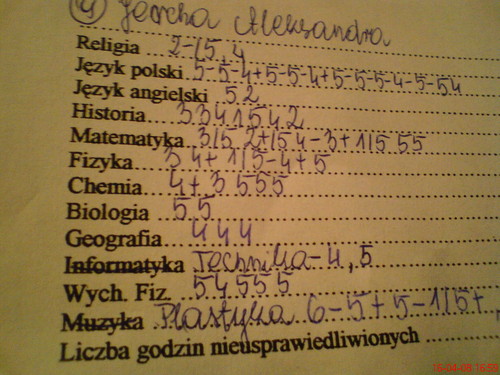 Aleksandra
Religia 2-15, 4
Język polski 5-5-4+5-5-4+5-5-5-4-5-54
Język angielski 52
Historia 3341542
Matematyka 3/5 2+154-3+1/5 55
Fizyka 34+1/5-4+5
Chemia 4+3555
Biologia 55
Geografia 444
Informatyka Technika-4,5
Wych. Fiz. 54555
Muzyka Plastyka 6-5+5-1/5+,
Liczba godzin nieusprawiedliwionych